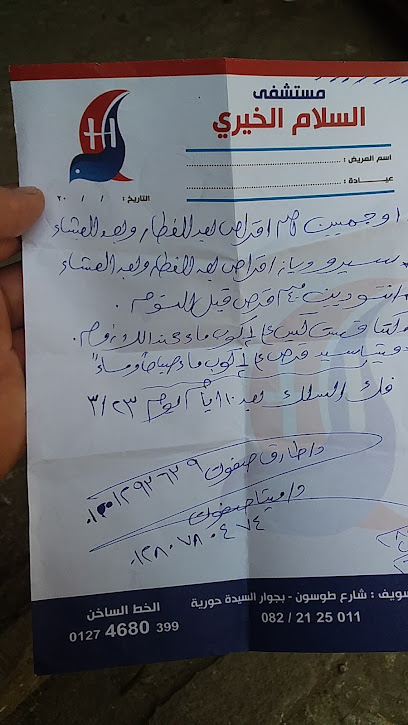 مستشفى
السلام الخيري
اسم المريض :
عيادة :
التاريخ : / / ٢٠
اوجمنتين اقراص بعد الفطار وبعد العشاء
سيرو اقراص بعد الفطار وبعد العشاء
انتودين ٤٠ مجم قرص قبل النوم .
كيس على كوب ماء عند اللزوم .
قرص على كوب ماء صباحا ومساء
فك السلك بعد ١٠ ايام يوم ٣/٢٣
د/ طارق صفوت
د/ صفوت
٠١٢٨٠٧٨٠٤٧٤
سويف : شارع طوسون - بجوار السيدة حورية
الخط الساخن
082 / 21 25 011
0127 4680 399